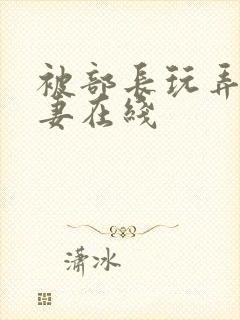 被部长玩弄
妻在线
潇冰